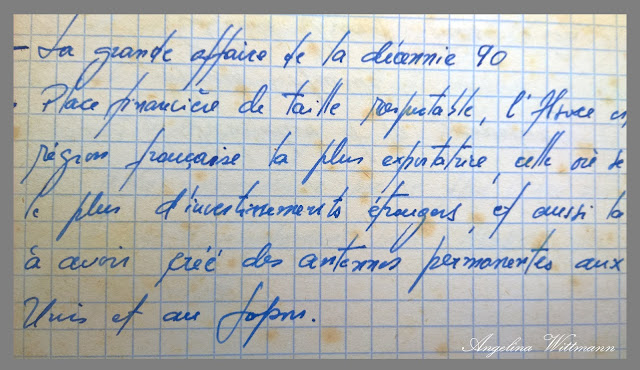 - La grande affaire de la décennie 90
. Place financière de taille respectable, l'Alsace es
région française la plus exportatrice, celle où se
le plus d'investissements étrangers, et aussi la
à avoir créé des antennes permanentes aux
Unis et au Japon.
Angelina Wittmann